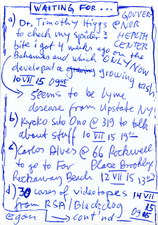 WAITING FOR...
a) Dr. Timothy Higgs @ NOR GOUVER-
to check my spider HEALTH
bite i got 4 weeks ago in the CENTER
Bahamas and which ONLY NOW
developed a growing rash,
10 VII 15
→ Seems to be lyme
disease from Upstate NY!
b) Kyoko Sato Ono @ 319 to talk
about stuff 10 VII 15
c) Carlos Alves @ 66 Rockwell
to go to For Place Brooklyn
Rockaway Beach 12 VII 15
d) 30 cores of videotapes 14 VII
from RSA/Blackdog 15
egon → cont'nd